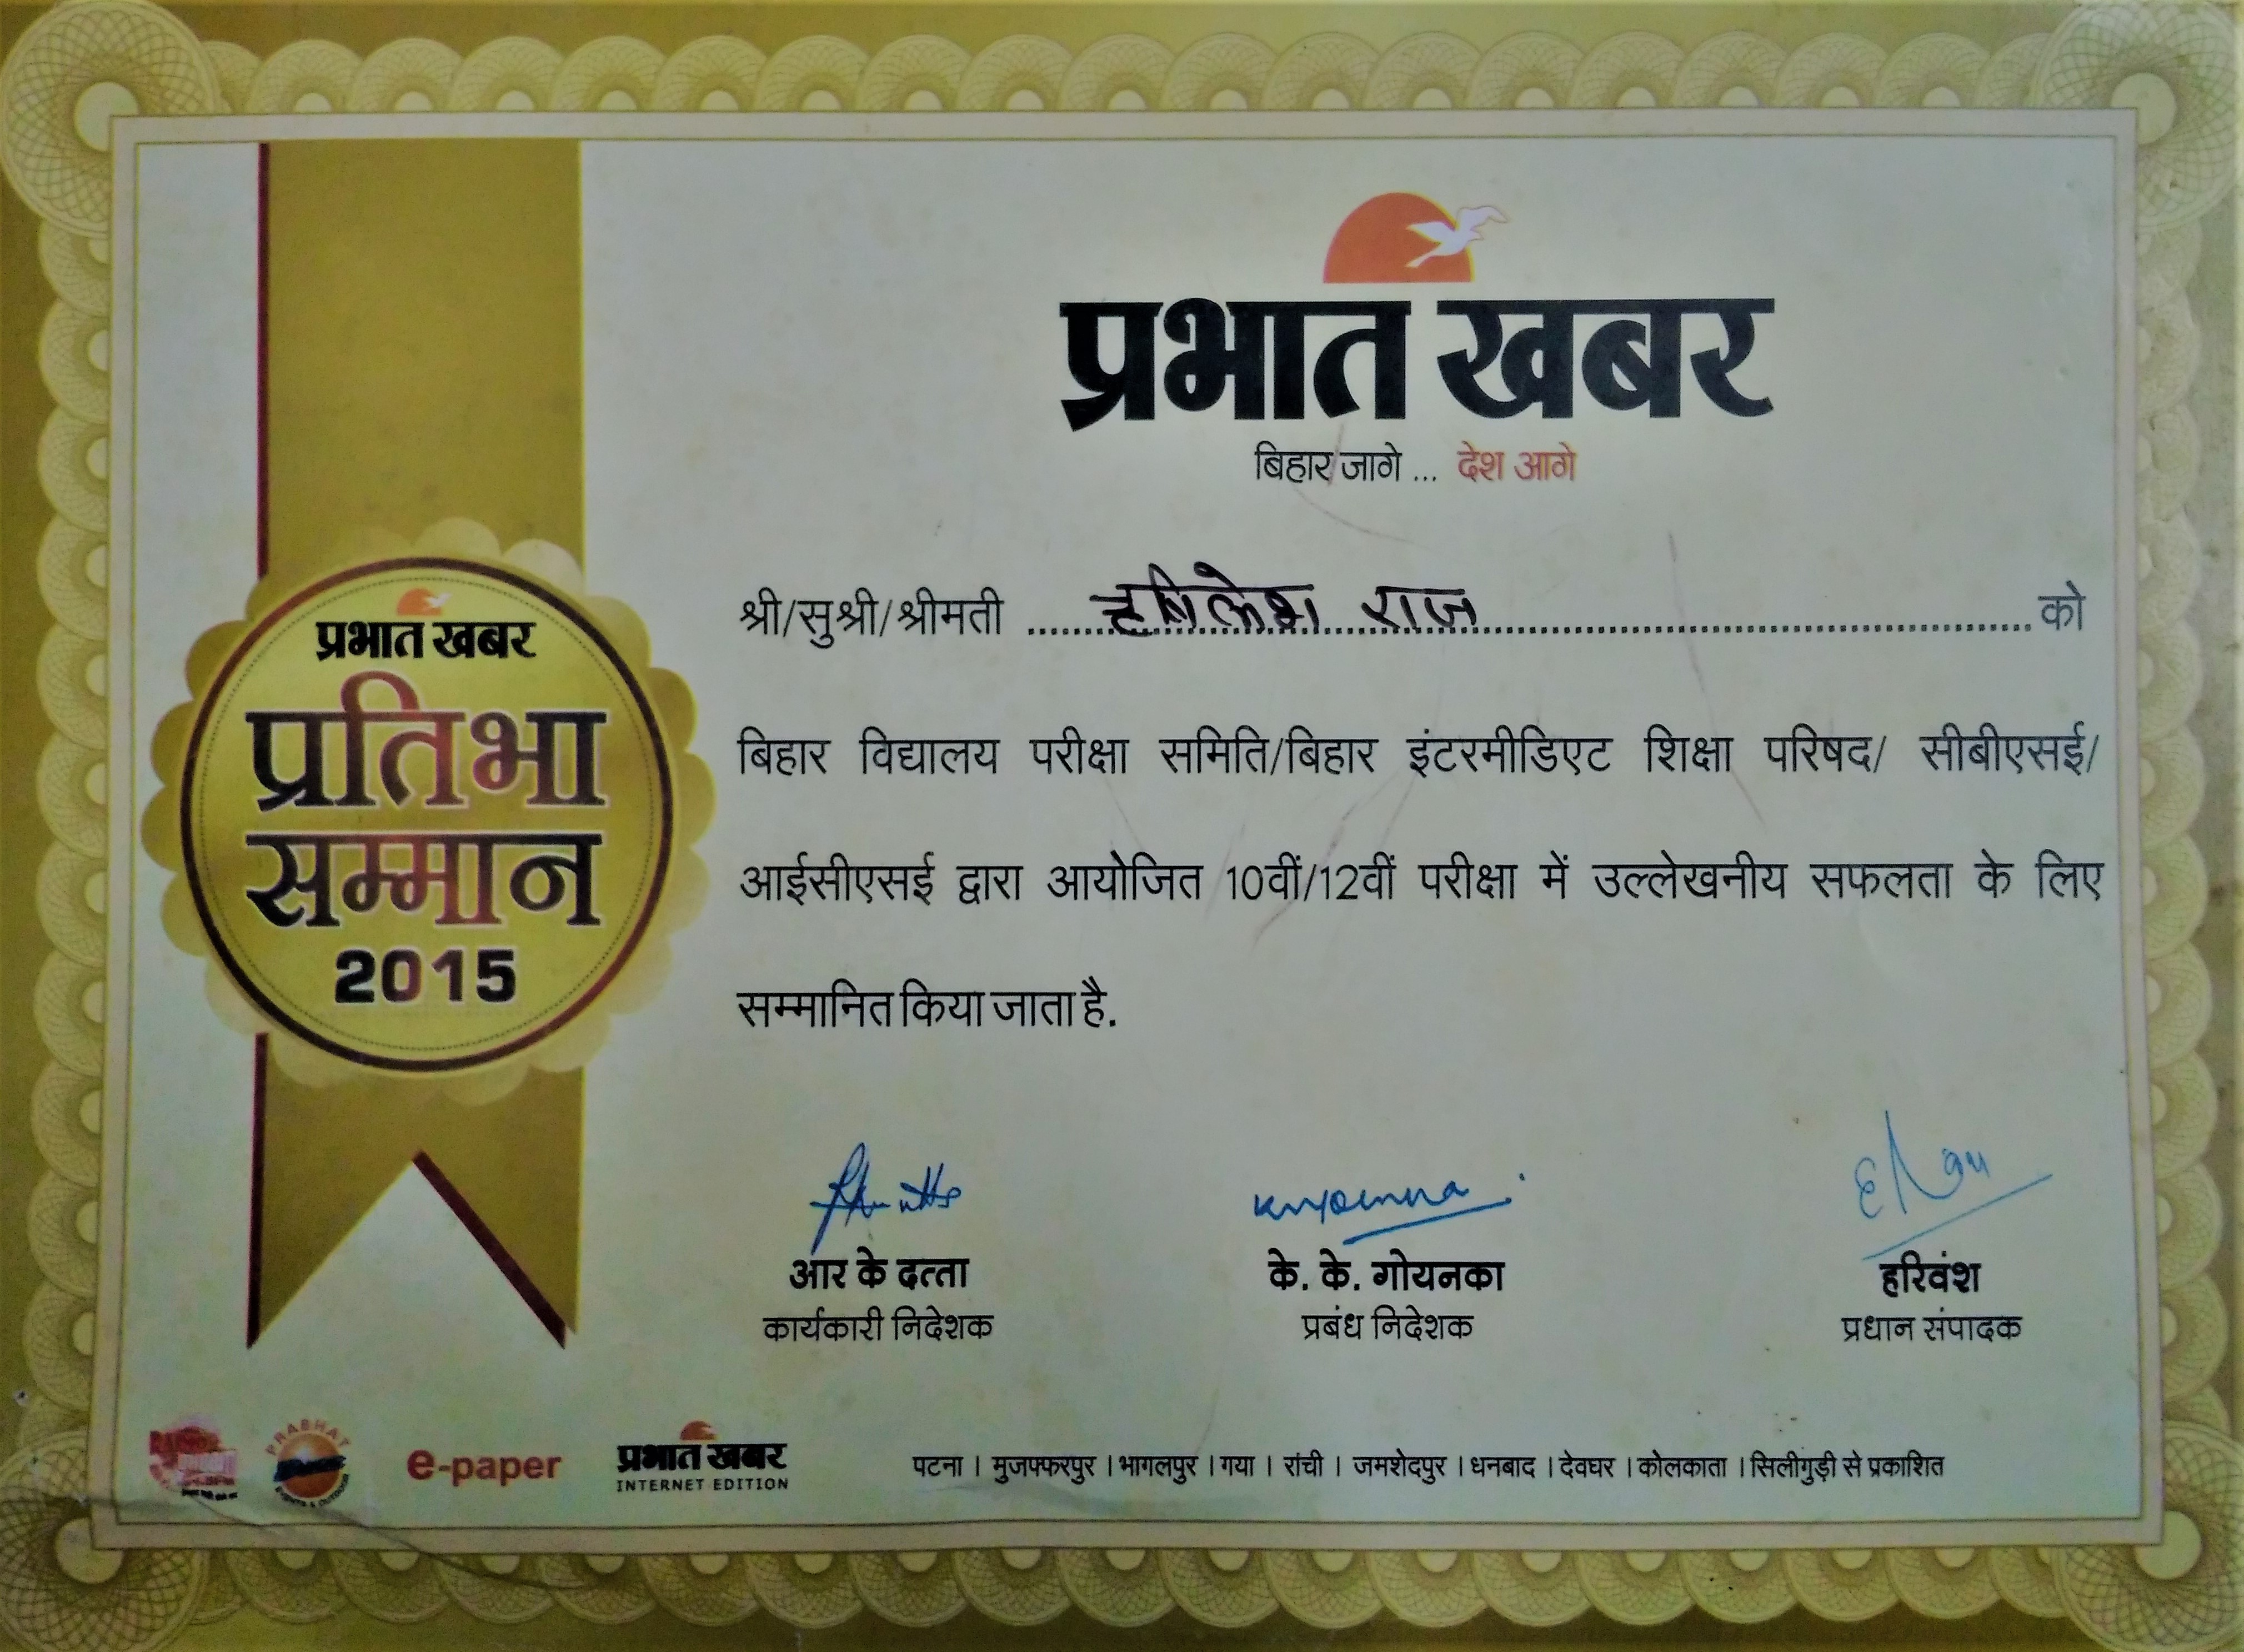 प्रभात खबर
बिहार जागे ... देश आगे
प्रभात खबर
प्रतिभा
सम्मान
2015
श्री/सुश्री/श्रीमती ऋषिकेश राज को
बिहार विद्यालय परीक्षा समिति/बिहार इंटरमीडिएट शिक्षा परिषद/ सीबीएसई/
आईसीएसई द्वारा आयोजित 10वीं/12वीं परीक्षा में उल्लेखनीय सफलता के लिए
सम्मानित किया जाता है.
आर के दत्ता
कार्यकारी निदेशक
के. के. गोयनका
प्रबंध निदेशक
हरिवंश
प्रधान संपादक
PRABHAT
EVENTS & OUTDOOR
e-paper
प्रभात खबर
INTERNET EDITION
पटना । मुजफ्फरपुर । भागलपुर । गया । रांची । जमशेदपुर । धनबाद । देवघर । कोलकाता । सिलीगुड़ी से प्रकाशित